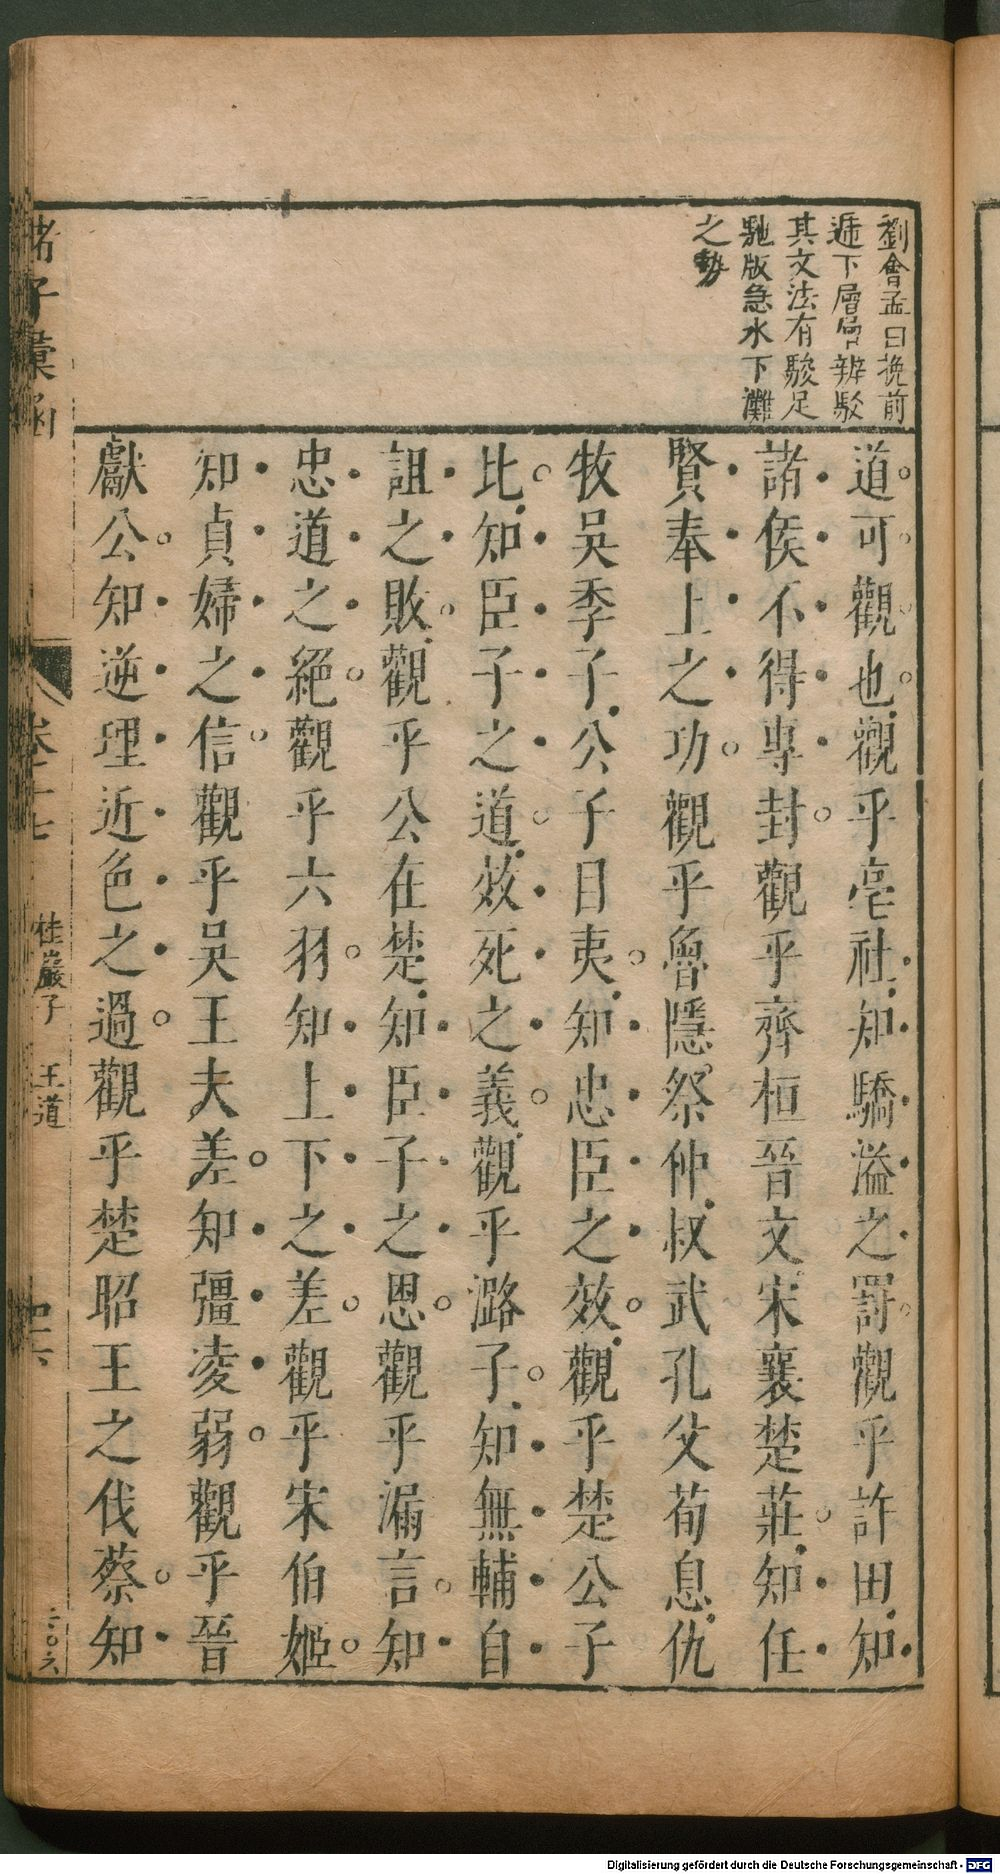 劉會孟曰挽前
遞下層層辨駁
其文法有駿足
馳版急水下灘
之勢
道可觀也觀乎亳社知驕溢之罰觀乎許田知
諸侯不得專封觀乎齊桓晉文宋襄楚莊知任
賢奉上之功觀乎魯隱祭仲叔武孔父荀息仇
牧吳季子公子目夷知忠臣之效觀乎楚公子
比知臣子之道效死之義觀乎潞子知無輔自
詛之敗觀乎公在楚知臣子之恩觀乎漏言知
忠道之絕觀乎六羽知上下之差觀乎宋伯姬
知貞婦之信觀乎吳王夫差知彊凌弱觀乎晉
獻公知逆理近色之過觀乎楚昭王之伐蔡知
諸子彙函 卷十七 桂巖子 王道 二〇六
Digitalisierung gefördert durch die Deutsche Forschungsgemeinschaft - DFG